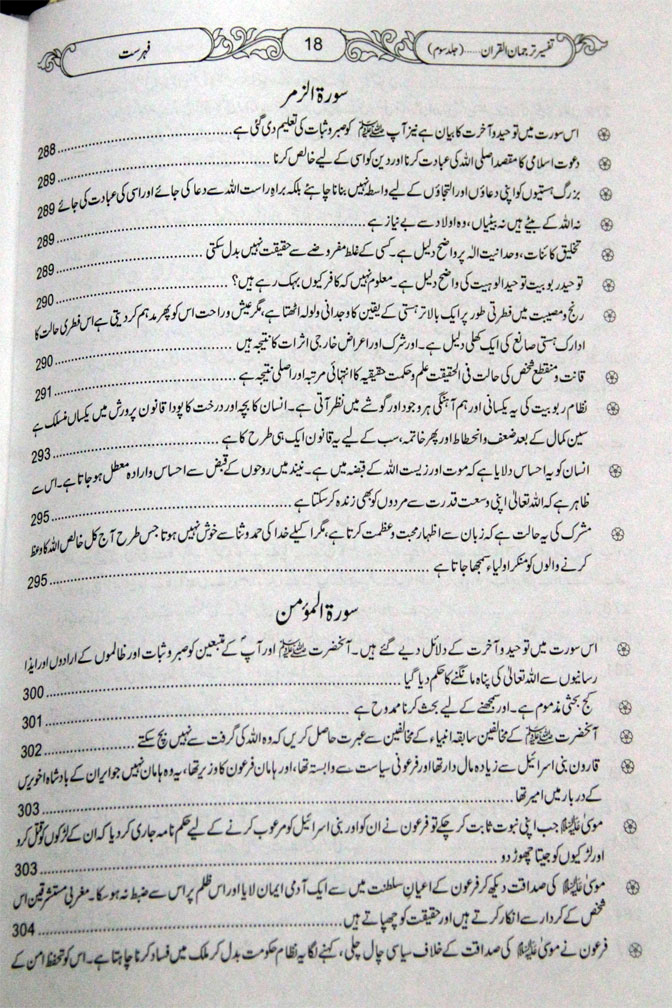 تفسیر ترجمان القرآن.....(جلد سوم)
18
فہرست
سورۃ الزمر
اس سورت میں توحید و آخرت کا بیان ہے نیز آپ ﷺ کو صبر و ثبات کی تعلیم دی گئی ہے ........ 288
دعوت اسلامی کا مقصد اصلی اللہ کی عبادت کرنا اور دین کو اسی کے لیے خالص کرنا ........ 289
بزرگ ہستیوں کو اپنی دعاؤں اور التجاؤں کے لیے واسطہ نہیں بنانا چاہئے بلکہ براہِ راست اللہ سے دعا کی جائے اور اسی کی عبادت کی جائے 289
نہ اللہ کے بیٹے ہیں نہ بیٹیاں، وہ اولاد سے بے نیاز ہے ........ 289
تخلیق کائنات، وحدانیت الٰہ پر واضح دلیل ہے۔ کسی کے غلط مفروضے سے حقیقت نہیں بدل سکتی ........ 289
توحید ربوبیت توحید الوہیت کی واضح دلیل ہے۔ معلوم نہیں کہ کافر کیوں بہک رہے ہیں؟ ........ 290
رنج و مصیبت میں فطرتی طور پر ایک بالاتر ہستی کے یقین کا وجدانی ولولہ اٹھتا ہے، مگر عیش و راحت اس کو پھر مدہم کر دیتی ہے اس فطری حالت کا
ادراک ہستی صانع کی ایک کھلی دلیل ہے۔ اور شرک اور اعراض خارجی اثرات کا نتیجہ ہیں ........ 290
قانت و منقطع شخص کی حالت فی الحقیقت علم و حکمت حقیقیہ کا انتہائی مرتبہ اور اصلی نتیجہ ہے ........ 291
نظام ربوبیت کی یہ یکسانی اور ہم آہنگی ہر وجود اور گوشے میں نظر آتی ہے۔ انسان کا بچہ اور درخت کا پودا قانون پرورش میں یکساں منسلک ہے
سین کمال کے بعد ضعف و انحطاط اور پھر خاتمہ، سب کے لیے یہ قانون ایک ہی طرح کا ہے ........ 293
انسان کو یہ احساس دلایا ہے کہ موت اور زیست اللہ کے قبضہ میں ہے۔ نیند میں روحوں کے قبض سے احساس و ارادہ معطل ہو جاتا ہے۔ اس سے
ظاہر ہے کہ اللہ تعالیٰ اپنی وسعت قدرت سے مردوں کو بھی زندہ کر سکتا ہے ........ 295
مشرک کی یہ حالت ہے کہ زبان سے اظہار محبت و عظمت کرتا ہے، مگر اکیلے خدا کی حمد و ثنا سے خوش نہیں ہوتا جس طرح آج کل خالص اللہ کا وعظ
کرنے والوں کو منکر اولیاء سمجھا جاتا ہے ........ 295
سورۃ المؤمن
اس سورت میں توحید و آخرت کے دلائل دیے گئے ہیں۔ آنحضرت ﷺ اور آپؐ کے متبعین کو صبر و ثبات اور ظالموں کے ارادوں اور ایذا
رسانیوں سے اللہ تعالیٰ کی پناہ مانگنے کا حکم دیا گیا ........ 300
کج بحثی مذموم ہے۔ اور سمجھنے کے لیے بحث کرنا ممدوح ہے ........ 301
آنحضرت ﷺ کے مخالفین سابقہ انبیاء کے مخالفین سے عبرت حاصل کریں کہ وہ اللہ کی گرفت سے نہیں بچ سکتے ........ 302
قارون بنی اسرائیل سے زیادہ مال دار تھا اور فرعونی سیاست سے وابستہ تھا، اور ہامان فرعون کا وزیر تھا، یہ وہ ہامان نہیں جو ایران کے بادشاہ اخویرس
کے دربار میں امیر تھا ........ 303
موسیٰ علیہ السلام جب اپنی نبوت ثابت کر چکے تو فرعون نے ان کو اور بنی اسرائیل کو مرعوب کرنے کے لیے حکم نامہ جاری کر دیا کہ ان کے لڑکوں کو قتل کرو
اور لڑکیوں کو جیتا چھوڑ دو ........ 303
موسیٰ علیہ السلام کی صداقت دیکھ کر فرعون کے اعیانِ سلطنت میں سے ایک آدمی ایمان لایا اور اس ظلم پر اس سے ضبط نہ ہو سکا۔ مغربی مستشرقین اس
شخص کے کردار سے انکار کرتے ہیں اور حقیقت کو چھپاتے ہیں ........ 304
فرعون نے موسیٰ علیہ السلام کی صداقت کے خلاف سیاسی چال چلی، کہنے لگا یہ نظام حکومت بدل کر ملک میں فساد کرنا چاہتا ہے۔ اس کو تحفظ امن کے